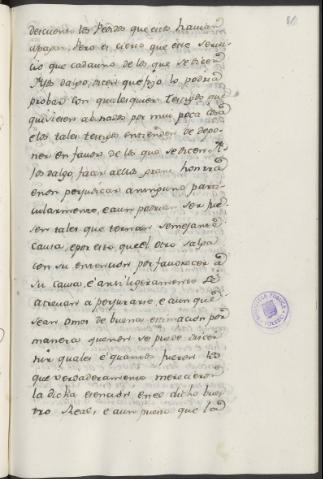 descuenten los Pechos que ellos havian
apagar. Pero es cierto que este servi
cio que cada uno de los que se dicen
Hijos dalgo, dicen que hizo lo podria
probar con qualesquier Testigos que
quisiesen abonados por muy poca cosa
e los tales testigos entienden de depo
ner en favor de los que se dicen Hi
jos dalgo, facen aellos gran honra
e non perjudican aninguno parti
cularmente, e aun podrian ser pre
sentales que tomaran semejante
Causa, e por esto quel otro salga
con su intencion por favorecer a
su Causa, e ansi ligeramente se
atreven a perjurarse, e aunque
sean omes de buena estimacion por
manera que non se puede discer
nir quales e quantos fueron los
que verdaderamente merecieron
la dicha esencion en el dicho bues
tro Real, e aun puesto que los